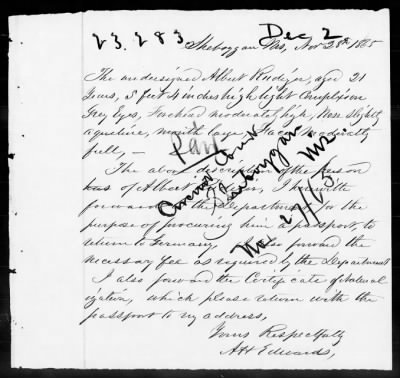 23.283 Dec 2
Sheboygan Wis, Nov 28th 1865
The undersigned Albert aged 21
Years, 5 feet 4 inches high light Complexion
Grey Eyes, Forehead moderately high, Nose Slightly
aquiline, mouth large Face moderately
full, —
The above description of the person
of Albert I herewith
forward to the Department for the
purpose of procuring him a passport, to
return to Germany, also forward the
necessary fee as required by the Department
I also forward the Certificate of Natural
ization, which please return with the
passport to my address,
Yours Respectfully
A H Edwards,
Sheboygan
Wis.